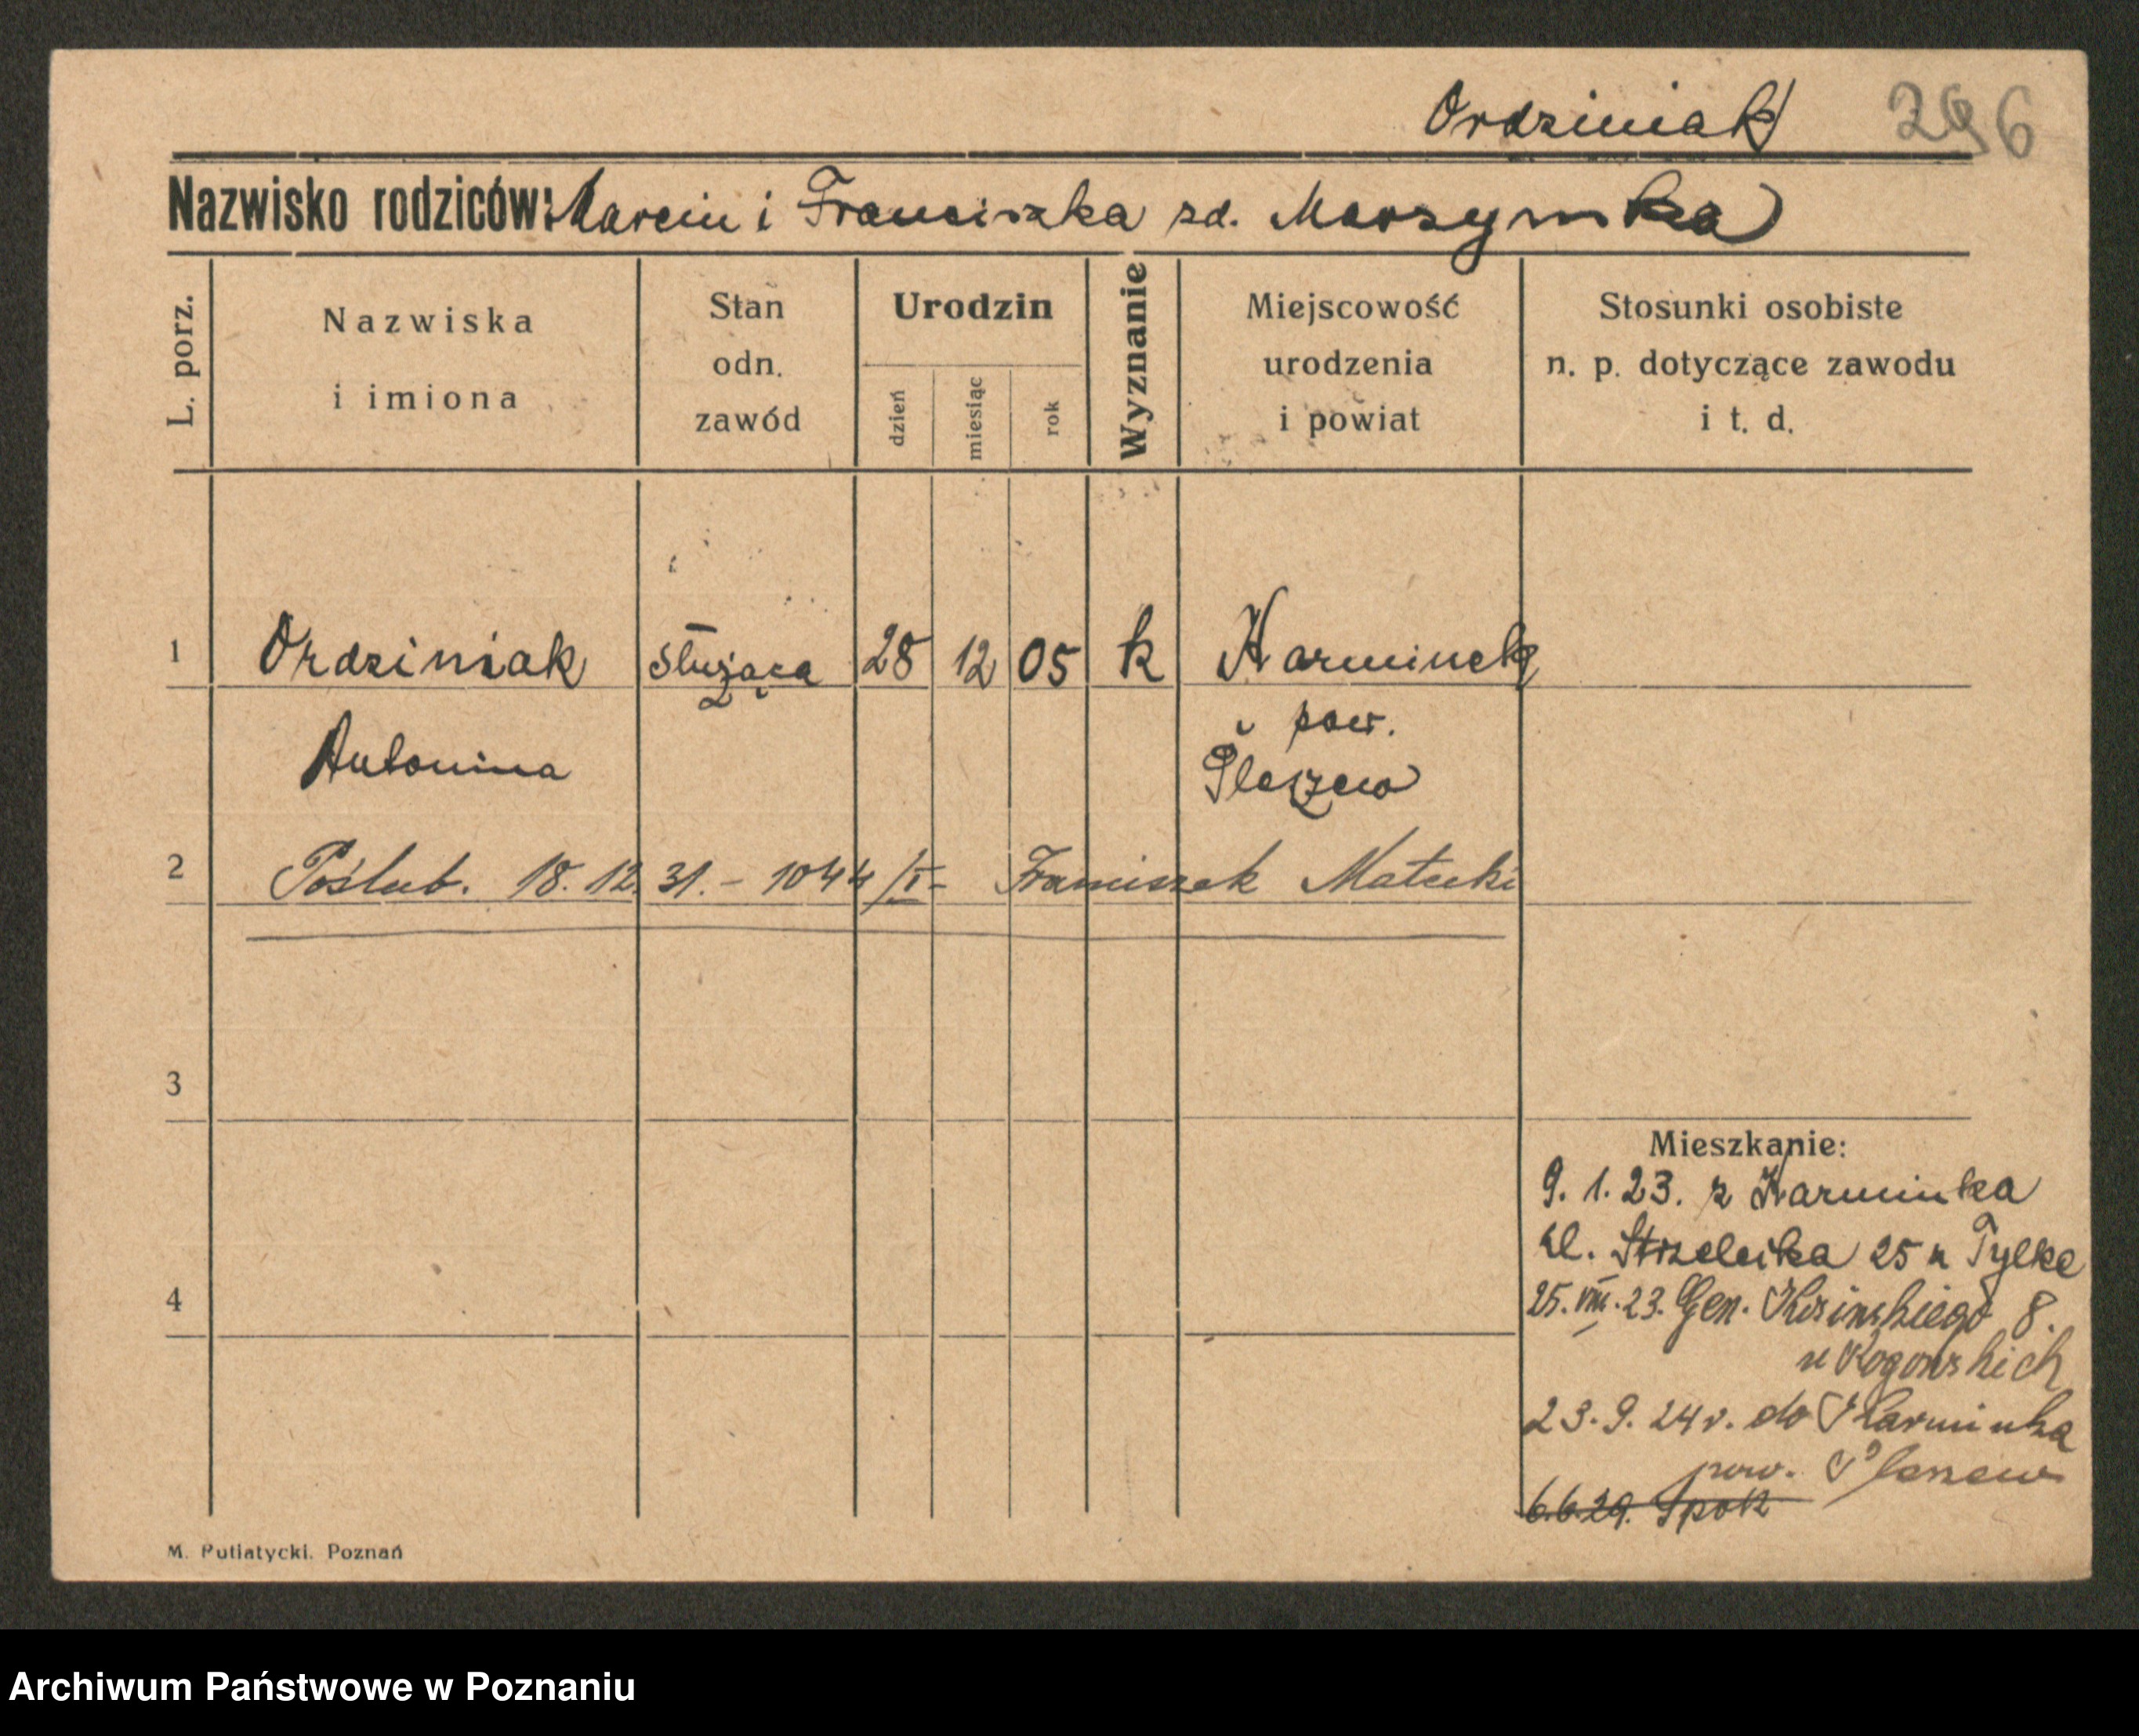 Ordziniak 296
Nazwisko rodziców: Marcin i Franciszka zd. Marszymka
L. porz.
Nazwiska i imiona
Stan odn. zawód
Urodzin
dzień
miesiąc
rok
Wyznanie
Miejscowość urodzenia i powiat
Stosunki osobiste n. p. dotyczące zawodu i t. d.
1 Ordziniak służąca 28 12 05 k Karminek
pow.
Antonina Pleszew
2 Poślub. 18. 12. 31. - 1044/I - Franciszek Matecki
3
4
Mieszkanie:
9. 1. 23. z Karminka
ul. Strzelecka 25 u Tylke
25. VIII. 23. Gen. Kosinskiego 8.
u Rogowskich
23. 9. 24 r. do Karminka
pow. Pleszew
6.6.29.
M. Putiatycki. Poznań
Archiwum Państwowe w Poznaniu